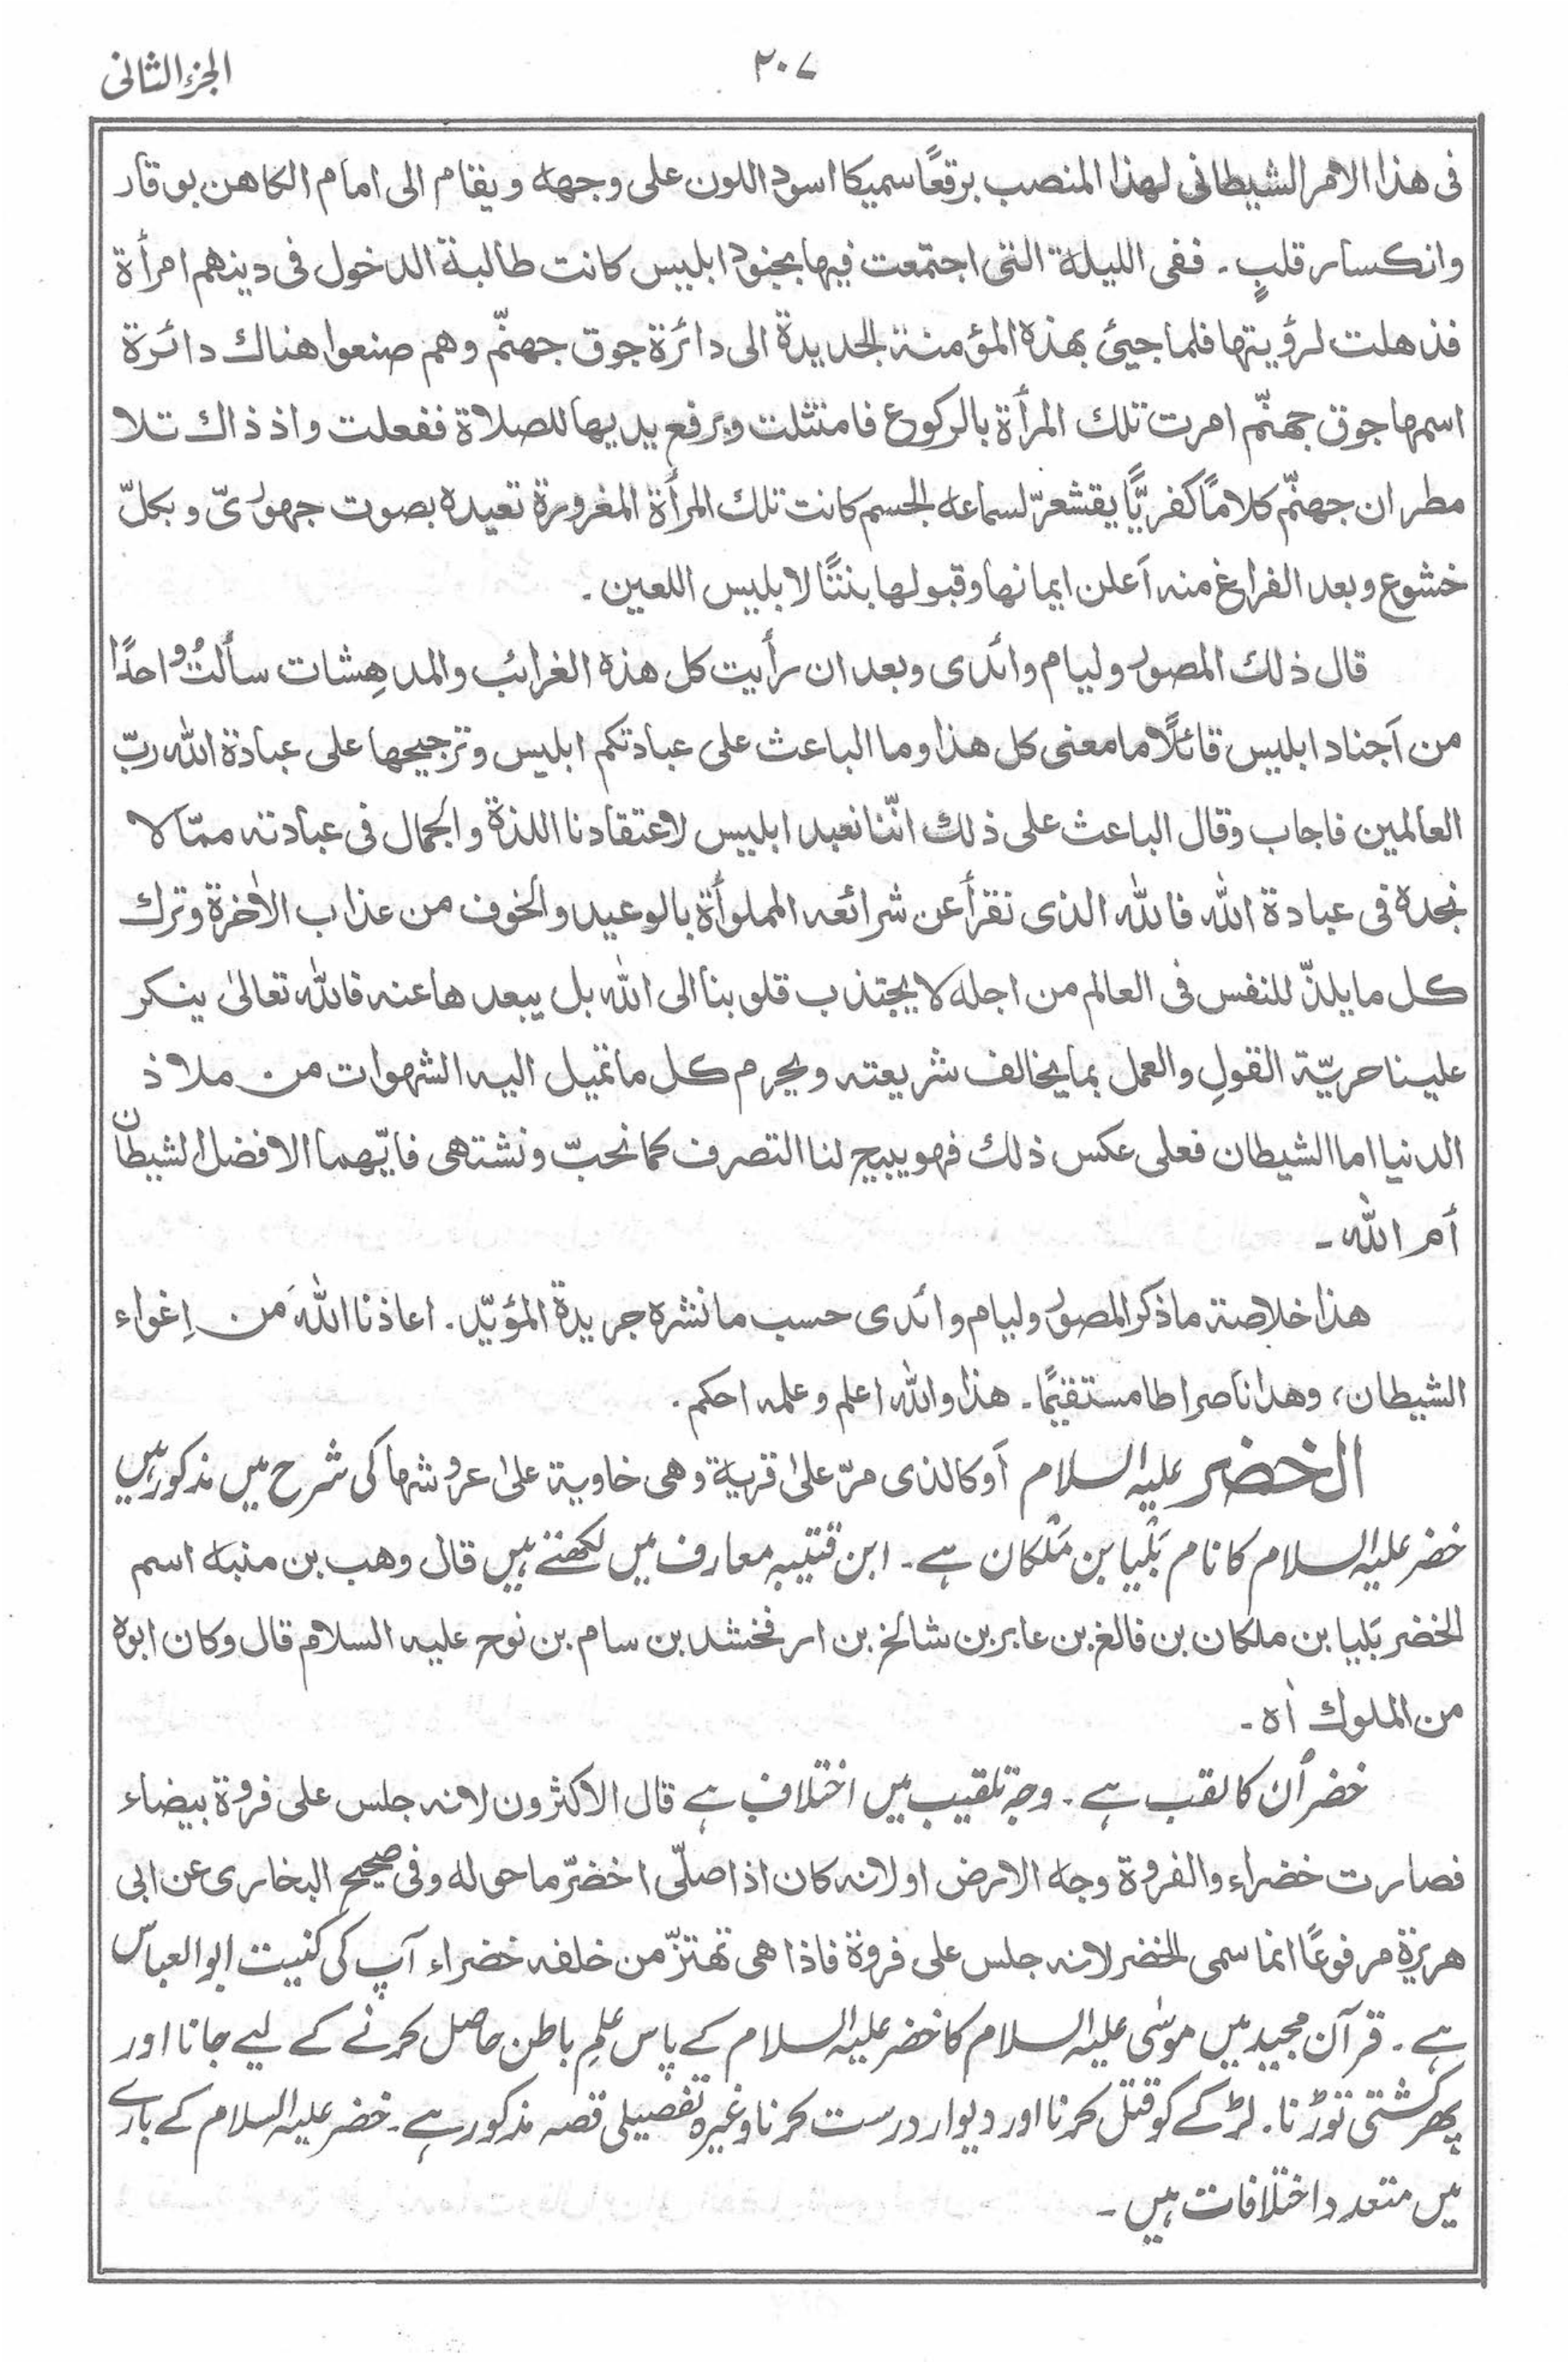 الجزء الثانى
٢٠٧
فى هذا الامر الشيطانى لهذا المنصب برقعًا سميكا اسود اللون على وجهه ويقام الى امام الكاهن بوقار
وانكسار قلبٍ۔ ففى الليلة التى اجتمعت فيها بجنود ابليس كانت طالبة الدخول فى دينهم امرأة
فذهلت لرؤيتها فلما جيئ بهذه المؤمنة الجديدة الى دائرة جوق جهنّم وهم صنعوا هناك دائرة
اسمها جوق جهنّم امرت تلك المرأة بالركوع فامتثلت وبرفع يديها للصلاة ففعلت واذ ذاك تلا
مطران جهنّم كلامًا كفريًّا يقشعرّ لسماعه الجسم كانت تلك المرأة المغرورة تعيده بصوت جهورىّ وبكلّ
خشوع وبعد الفراغ منه اَعلن ايمانها وقبولها بنتًا لابليس اللعين۔
قال ذلك المصور وليام وائدى وبعد ان رأيت كل هذه الغرائب والمدهِشات سألتُ واحدًا
من اَجناد ابليس قائلًا ما معنى كل هذا وما الباعث على عبادتكم ابليس وترجيحها على عبادة الله ربّ
العالمين فاجاب وقال الباعث على ذلك انّنا نعبد ابليس لاعتقادنا اللذة والجمال فى عبادته ممّا لا
نجده فى عبادة الله فالله الذى نقرأ عن شرائعه المملوأة بالوعيد والخوف من عذاب الاٰخرة وترك
كل ما يلذّ للنفس فى العالم من اجله لا يجتذب قلوبنا الى الله بل يبعدها عنه فالله تعالىٰ ينكر
علينا حريّة القولِ والعمل بما يخالف شريعته ويحرم كل ما تميل اليه الشهوات من ملاذ
الدنيا اما الشيطان فعلى عكس ذلك فهو يبيح لنا التصرف كما نحبّ ونشتهى فايّهما الافضل الشيطان
أم الله۔
هذا خلاصة ما ذكر المصور وليام وائدى حسب ما نشره جريدة المؤيّد۔ اعاذنا اللهُ من اِغواء
الشيطان، وهدانا صراطا مستقيمًا۔ هذا والله اعلم وعلمه احكم۔
الخضر علیہ السلام اَوكالذى مرّ علىٰ قرية وهى خاوية علىٰ عروشها کی شرح میں مذکور ہیں
خضر علیہ السلام کا نام بَلْیا بن مَلْکان ہے۔ ابن قتیبہ معارف میں لکھتے ہیں قال وهب بن منبه اسم
الخضر بَليا بن ملكان بن فالغ بن عابر بن شالخ بن ارفخشد بن سام بن نوح عليه السلام قال وكان ابوه
من الملوك اٰه۔
خضر اُن کا لقب ہے۔ وجۂ تلقیب میں اختلاف ہے قال الاكثرون لانه جلس على فروة بيضاء
فصارت خضراء والفروة وجه الارض اولانه كان اذا صلّى اخضرّ ما حوله وفى صحيح البخارى عن ابى
هريرة مرفوعًا انما سمى الخضر لانه جلس على فروة فاذا هى تهتزّ من خلفه خضراء آپ کی کنیت ابو العباس
ہے۔ قرآن مجید میں موسٰی علیہ السلام کا خضر علیہ السلام کے پاس علمِ باطن حاصل کرنے کے لیے جانا اور
پھر کشتی توڑنا۔ لڑکے کو قتل کرنا اور دیوار درست کرنا وغیرہ تفصیلی قصہ مذکور ہے۔ خضر علیہ السلام کے بارے
میں متعدد اختلافات ہیں۔